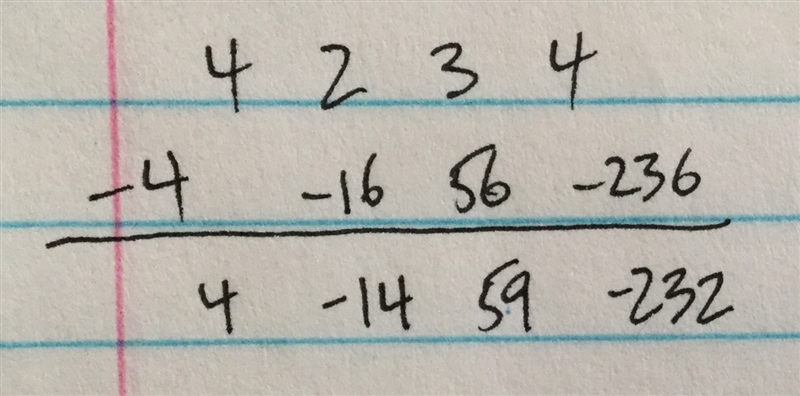 4 2 3 4
-4 -16 56 -236
4 -14 59 -232